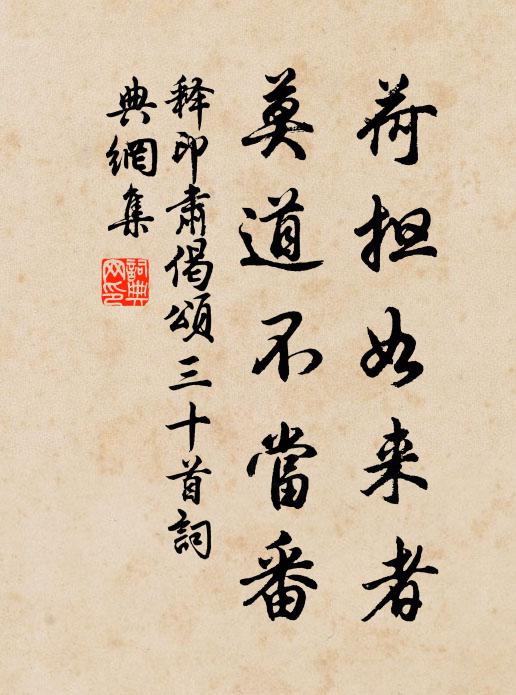 荷担如来者
莫道不當番
释印肃偈頌三十首詞
典網集
詞典
网印